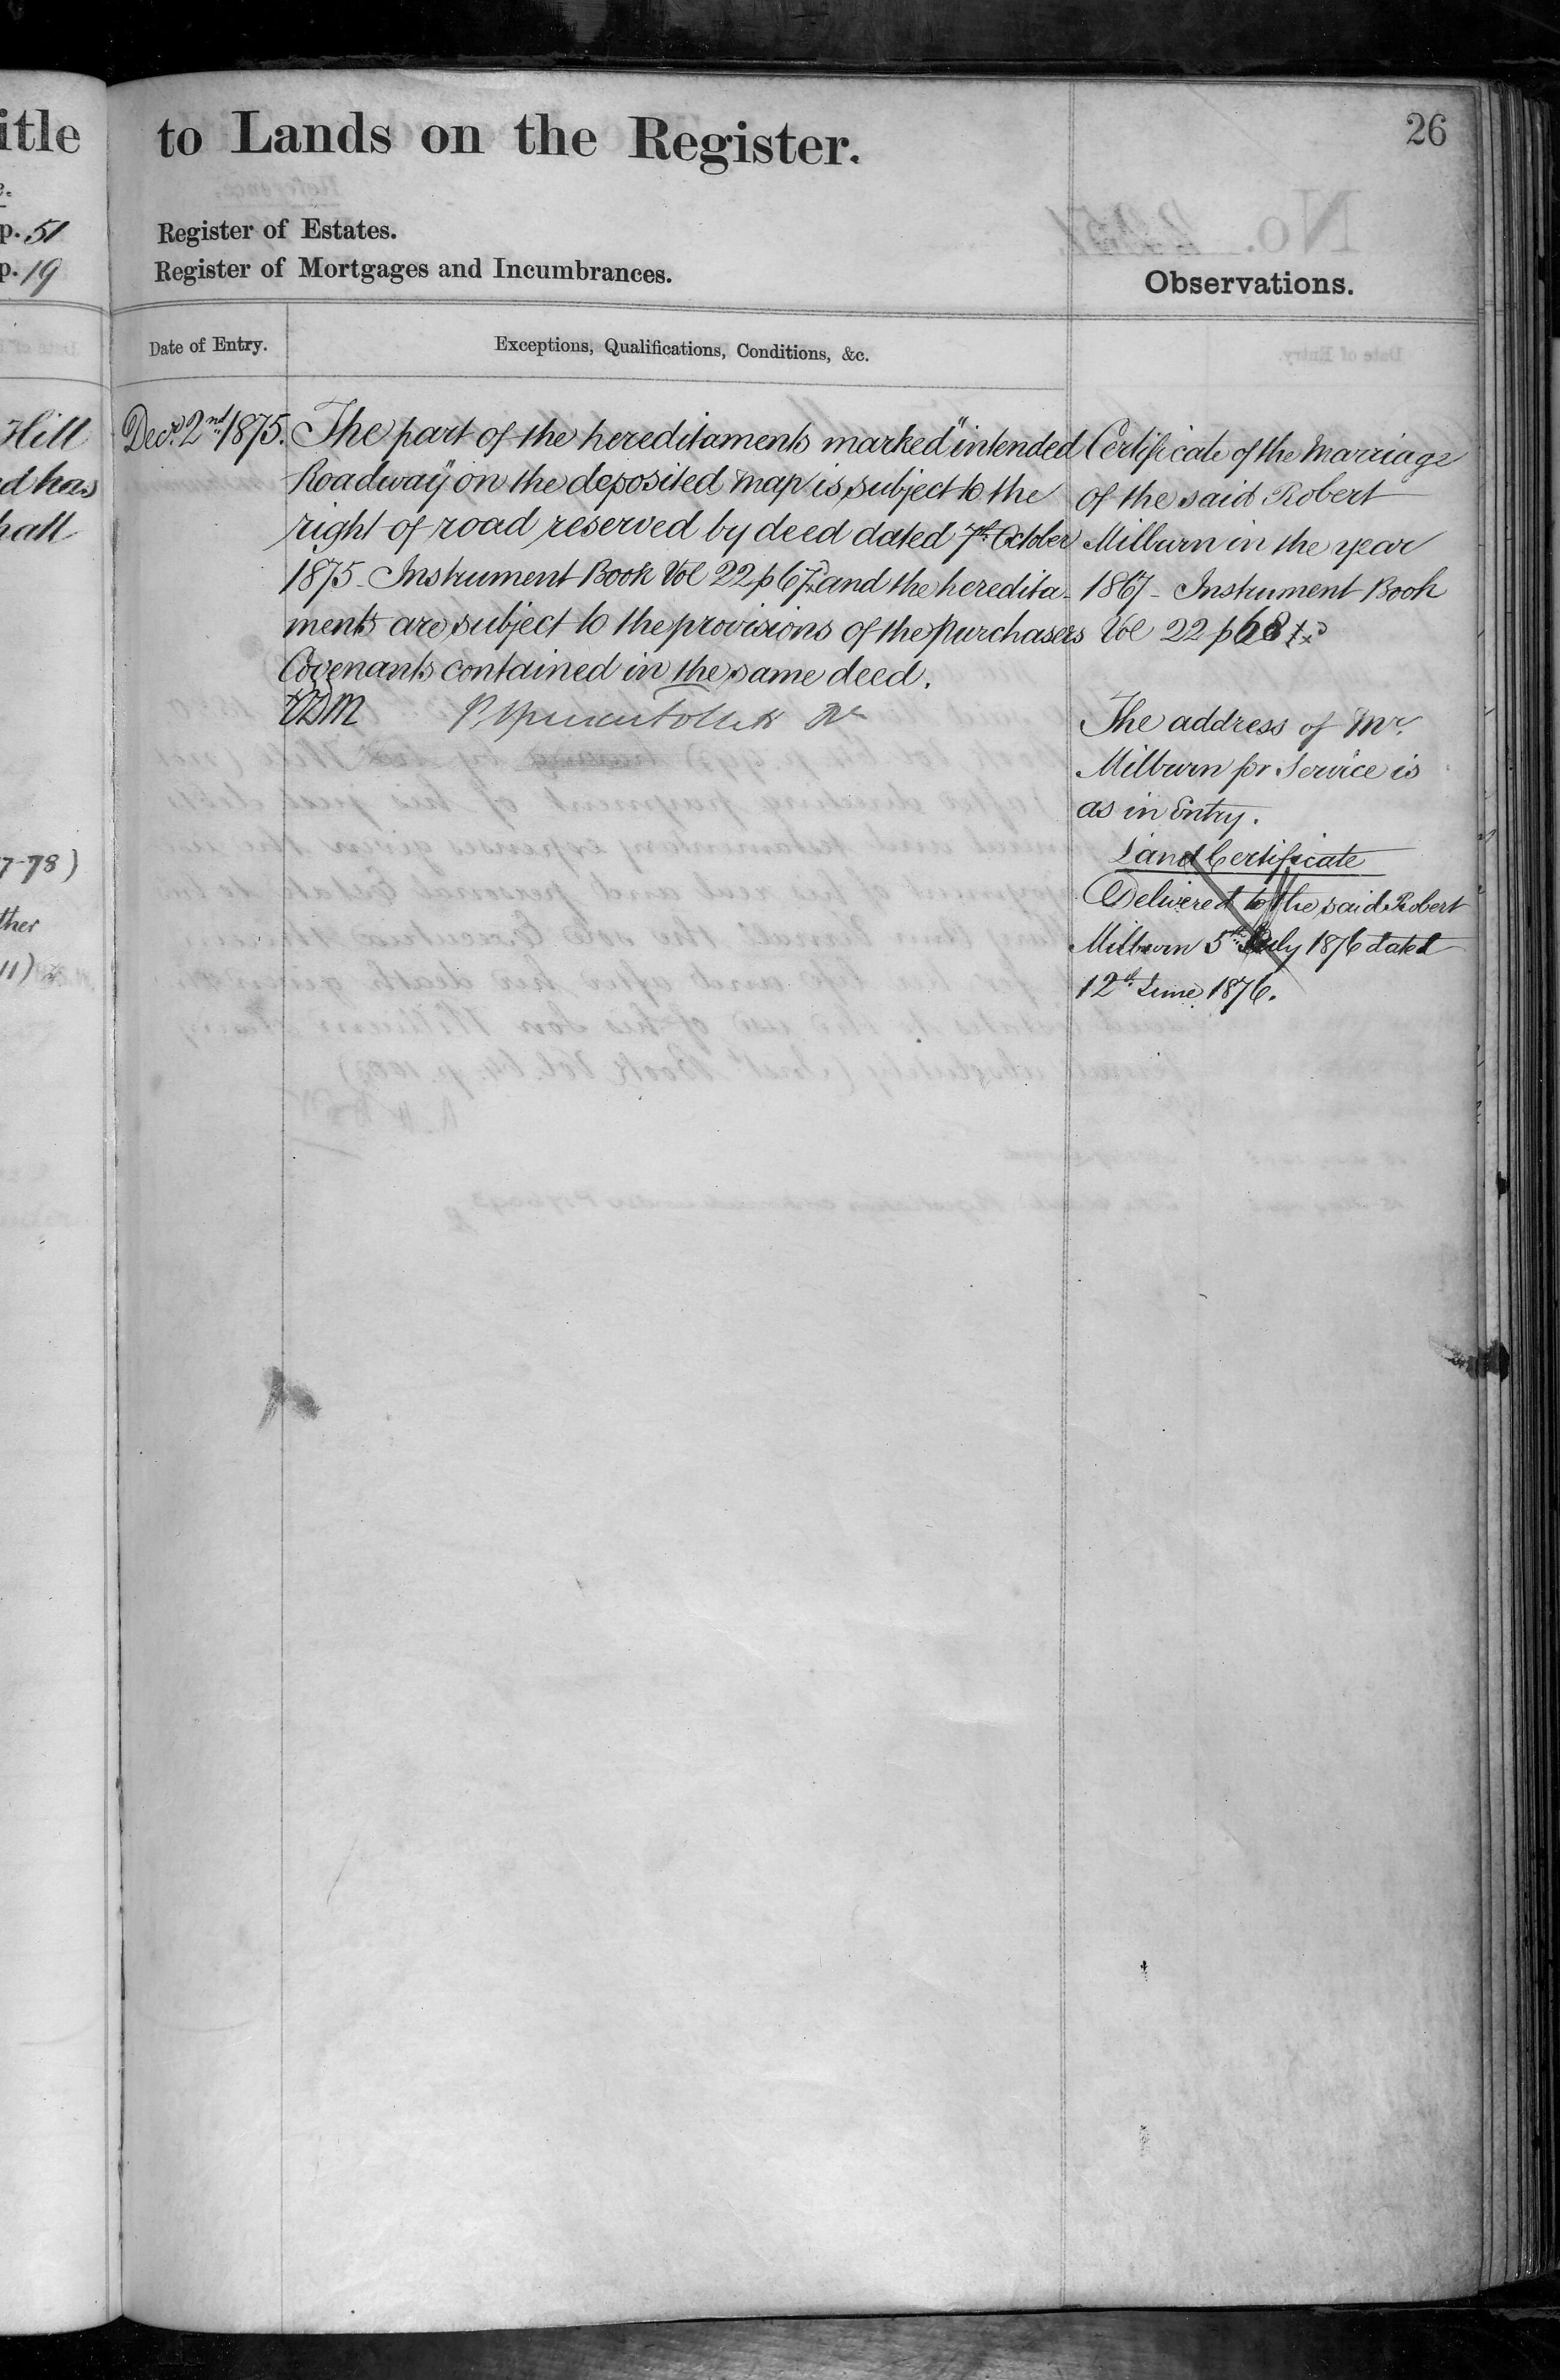 itle
p. 51
p. 19
Hill
d has
hall
7-78)
ther
11)
to Lands on the Register.
26
Register of Estates.
Register of Mortgages and Incumbrances.
Observations.
Date of Entry.
Exceptions, Qualifications, Conditions, &c.
Decr. 2nd 1875.
The part of the hereditaments marked "intended
Roadway" on the deposited map is subject to the
right of road reserved by deed dated 7th October
1875 - Instrument Book Vol 22 p 67 and the heredita-
ments are subject to the provisions of the Purchasers
Covenants contained in the same deed.
Certificate of the Marriage
of the said Robert
Milburn in the year
1867 - Instrument Book
Vol 22 p 68
The address of Mr.
Milburn for Service is
as in Entry.
Land Certificate
Delivered to the said Robert
Milburn 5th July 1876 dated
12th June 1876.